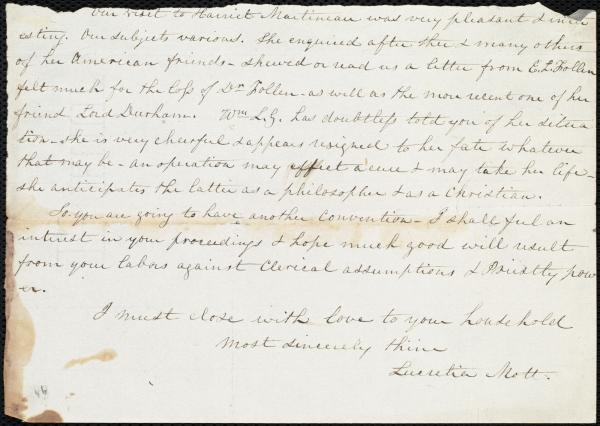 Our visit to Harriet Martineau was very pleasant & inter
esting. Our subjects various. She enquired after thee & many others
of her American friends - shewed or read us a letter from E. L. Follen
felt much for the loss of Dr. Follen - as well as the more recent one of her
friend Lord Durham. Wm. L. G. has doubtless told you of her situa
tion - she is very cheerful & appears resigned to her fate whatever
that may be - an operation may effect a cure & may take her life -
she anticipates the latter as a philosopher & as a Christian.
So you are going to have another Convention - I shall feel an
interest in your proceedings & hope much good will result
from your labors against Clerical assumptions & Priestly pow
er.
I must close with love to your household
most sincerely thine
Lucretia Mott.